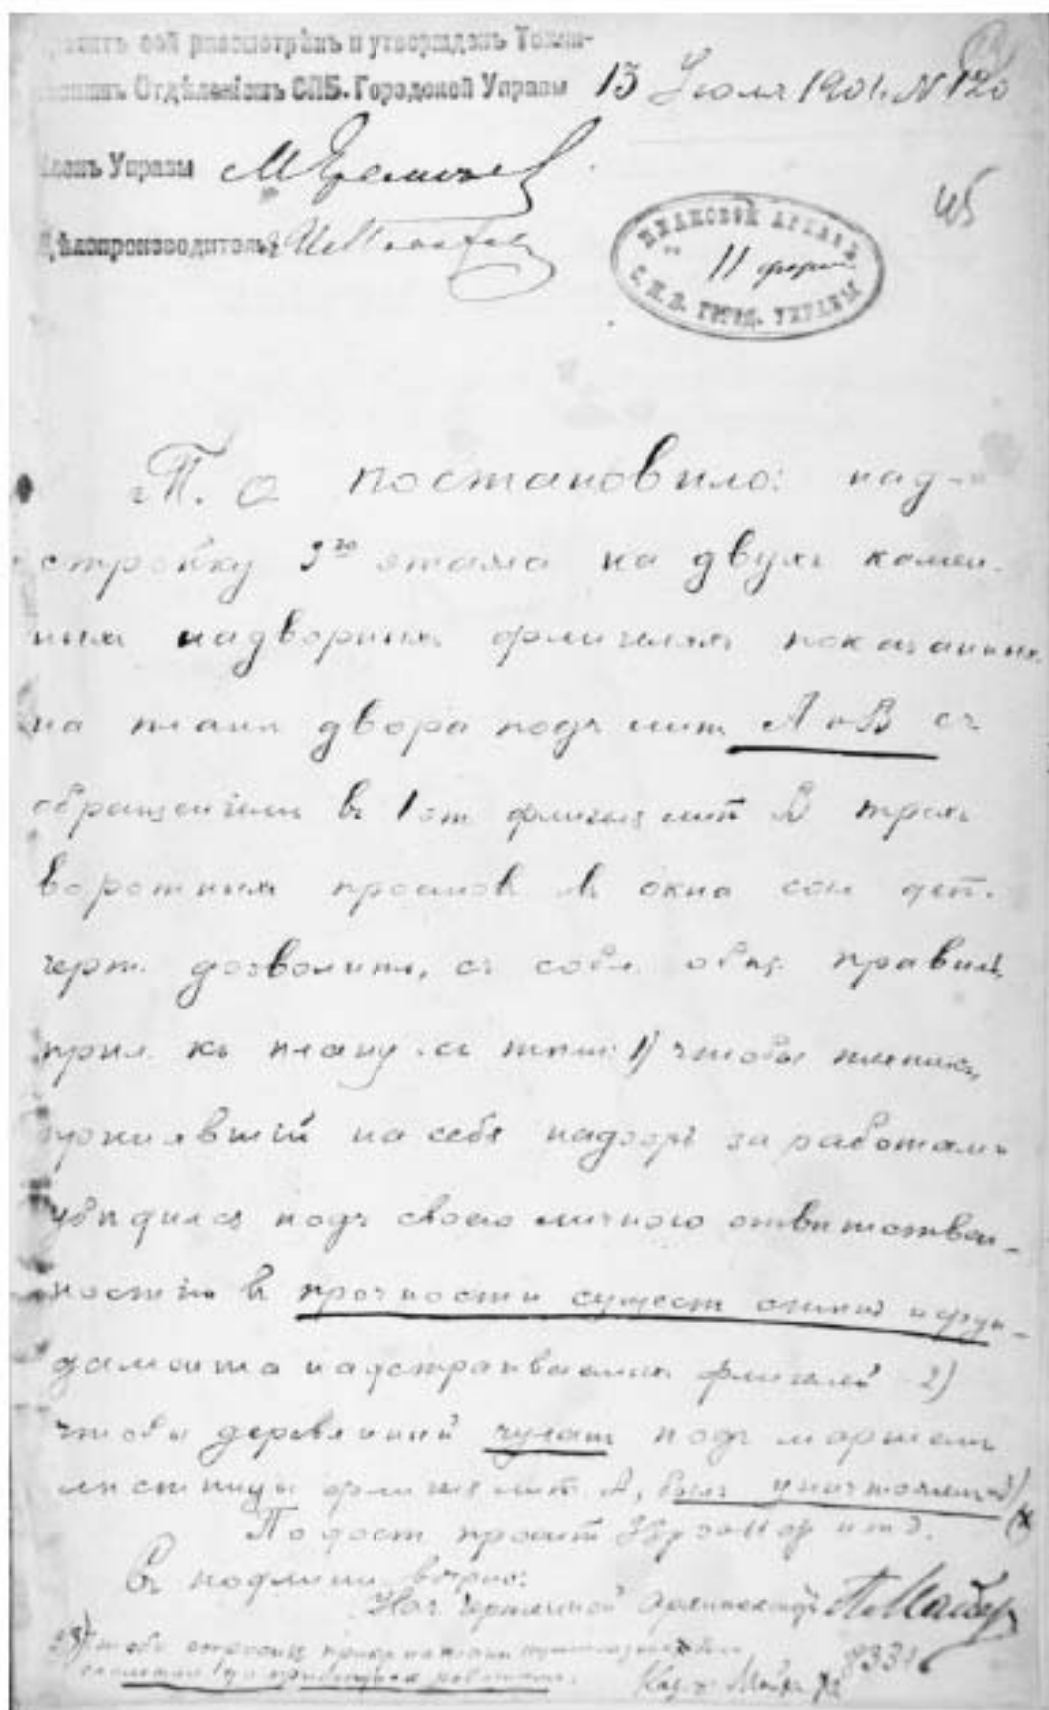 сей разсмотрѣнъ и утвержденъ Техни-
Отдѣленіемъ СПБ. Городской Управы 13 Іюля 1901. N 120
Членъ Управы
Дѣлопроизводитель
С.П.Б. ГОРОД. УПРАВЫ
Т. О постановило: над-
стройку 3го этажа на двухъ камен-
ныхъ надворныхъ флигеляхъ показанныхъ
на планѣ двора подъ лит. А и В съ
обращеніемъ въ 1 эт флигеля лит В трехъ
воротныхъ проемовъ въ окна согл дет.
черт. дозволить, съ собл. общ. правилъ,
прил. къ плану съ тѣмъ: 1) чтобы техникъ,
принявшій на себя надзоръ за работами
убѣдился подъ своею личною отвѣтствен-
ностью въ прочности сущест стѣнъ и фун-
дамента надстраиваемыхъ флигелей 2)
чтобы деревянный чуланъ подъ маршемъ
лѣстницы флигеля лит. А, былъ уничтоженъ
Подост проект
Съ подлин. вѣрно:
Нач. Чертежной Архитекторъ П. Майеръ
8331